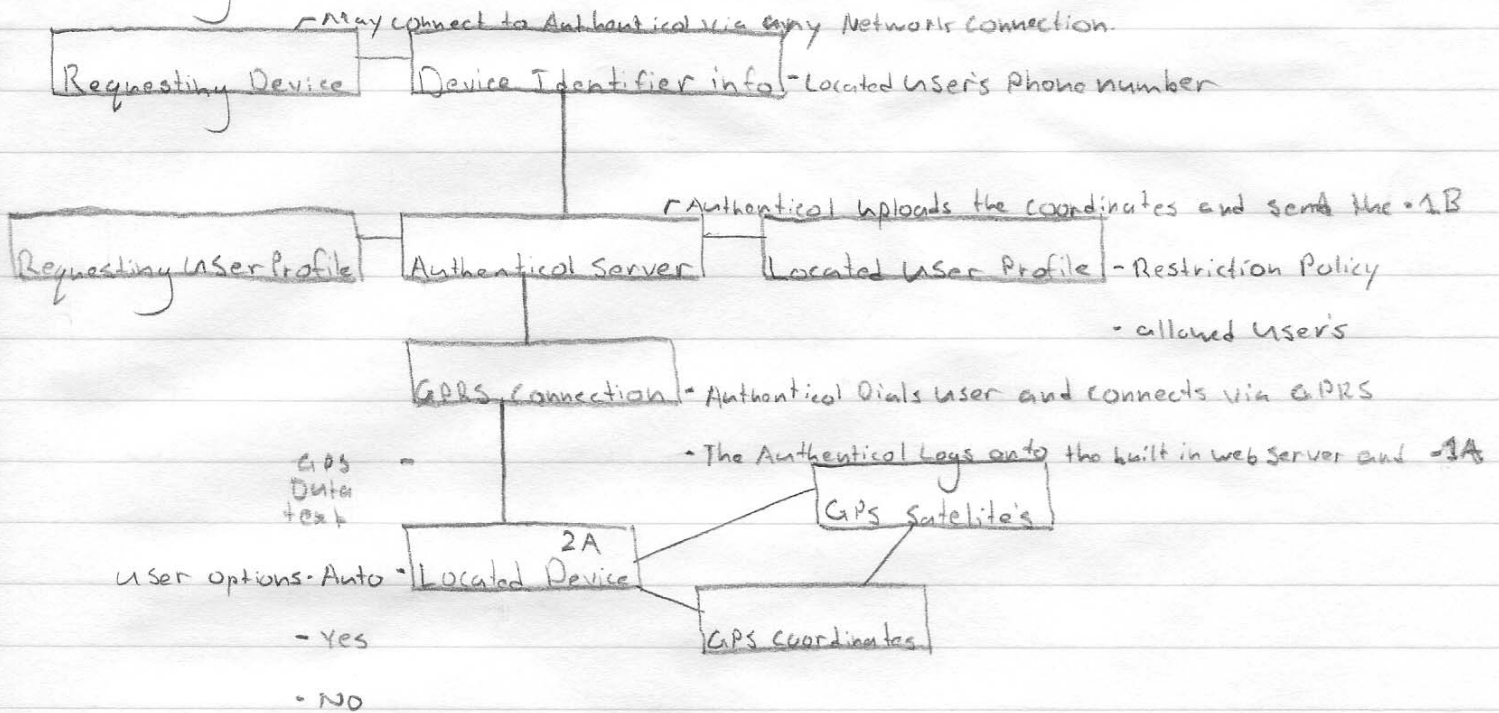 -May connect to Authentical via any Network connection.
Requesting Device Device Identifier info -Located user's Phone number
-Authentical uploads the coordinates and send the -1B
Requesting User Profile Authentical Server Located User Profile -Restriction Policy
- allowed User's
GPRS Connection - Authentical Dials user and connects via GPRS
- The Authentical Logs onto the built in web server and -1A
GPS -
Data
text
GPS Satelite's
2A
User options. Auto - Located Device
- Yes
GPS Coordinates
- NO